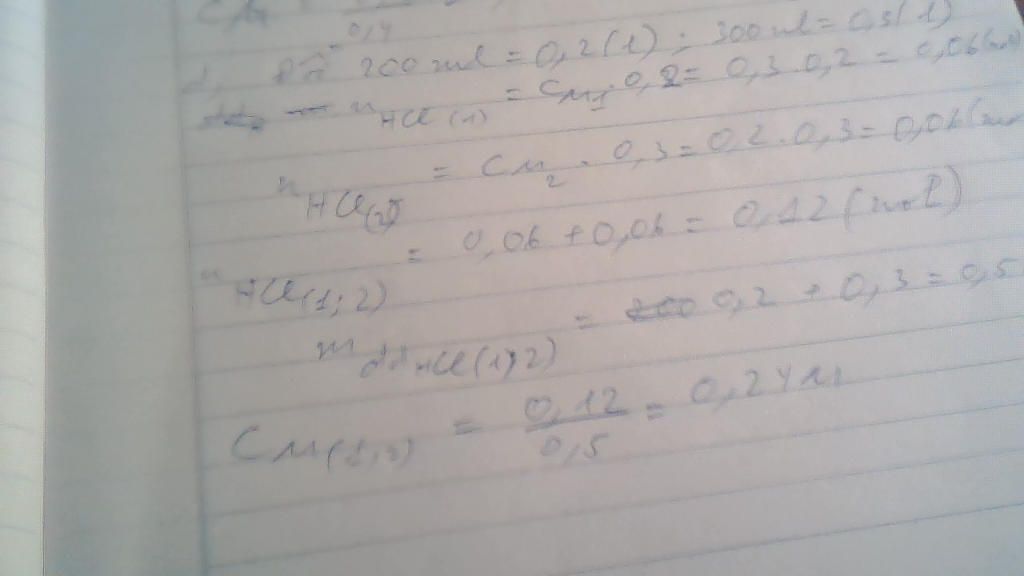 CM
0,4
d, Đổi 200ml = 0,2(l) ; 300ml = 0,3(l)
n HCl(1) = CM1 . 0,2 = 0,3 . 0,2 = 0,06(mol)
n HCl(2) = CM2 . 0,3 = 0,2 . 0,3 = 0,06(mo
n HCl(1;2) = 0,06 + 0,06 = 0,12(mol)
m ddHCl(1,2) = 0,2 + 0,3 = 0,5
CM(1,2) = 0,12/0,5 = 0,24M